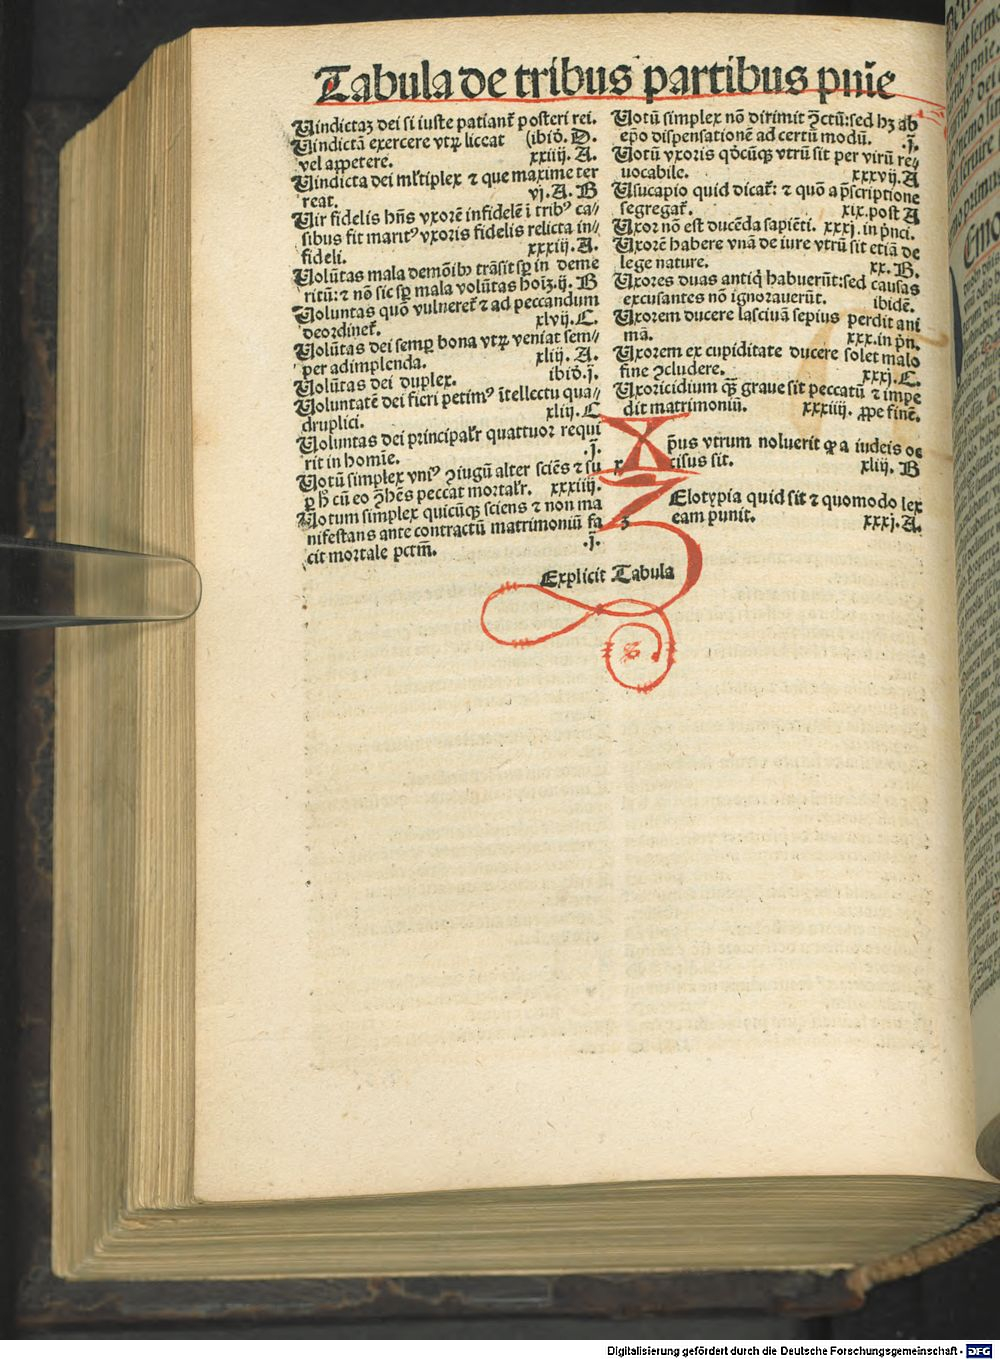 Tabula de tribus partibus pnīe
Uindictaʒ dei si iuste patiant᷑ posteri rei.
Uindictā exercere vtꝝ liceat (ibiđ. D.
vel appetere. xxiiij. A.
Uindicta dei ml̓tiplex ⁊ que maxime ter
reat. vj. A. B
Uir fidelis hn̄s vxorē infidelē i trib⁹ ca//
sibus fit marit⁹ vxoris fidelis relicta in//
fideli. xxxiij. A.
Uolūtas mala demōibꝫ trāsit sꝑ in deme
ritū: ⁊ nō sic sꝑ mala volūtas hoīʒ. ij. B
Uoluntas quō vulneret᷑ ⁊ ad peccandum
deordinet᷑. xlvij. C.
Uolūtas dei semꝑ bona vtꝝ veniat sem//
per adimplenda. xliij. A.
Uolūtas dei duplex. ibiđ. j̄.
Uoluntatē dei fieri petim⁹ ītellectu qua//
druplici. xliij. C
Uoluntas dei principalr̄ quattuor requi
rit in homīe. .j̄.
Uotū simplex vni⁹ ꝯiugū alter sciēs ⁊ su
ꝑ ħ cū eo ꝯhēs peccat mortalr̄. xxxiiij.
Uotum simplex quicūqꝫ sciens ⁊ non ma
nifestans ante contractū matrimoniū fa
cit mortale pctm̄. .j̄.
Uotū simplex nō dirimit ꝯ̄ctū: sed hꝫ ab
ep̄o dispensationē ad certū modū. .j̄.
Uotū vxoris qđcūqꝫ vtrū sit per virū re//
uocabile. xxxvij. A
Usucapio quid dicat᷑: ⁊ quō a p̄scriptione
segregat᷑. xix. post A
Uxor nō est ducēda sapiēti. xxxj. in pn̄ci.
Uxorē habere vnā de iure vtrū sit etiā de
lege nature. xx. B.
Uxores duas antiq̇ habuerūt: sed causas
excusantes nō ignorauerūt. ibidē.
Uxorem ducere lasciuā sepius perdit ani
mā. xxx. in pn̄.
Uxorem ex cupiditate ducere solet malo
fine ꝯcludere. xxxj. C.
Uxoricidium qꝫ̄ graue sit peccatū ⁊ impe
dit matrimoniū. xxxiiij. ꝓpe finē.
X
xp̄us vtrum noluerit ꝙ a iudeis oc
cisus sit. xliij. B
Z
zElotypia quid sit ⁊ quomodo lex
eam punit. xxxj. A.
Explicit Tabula
Digitalisierung gefördert durch die Deutsche Forschungsgemeinschaft - DFG